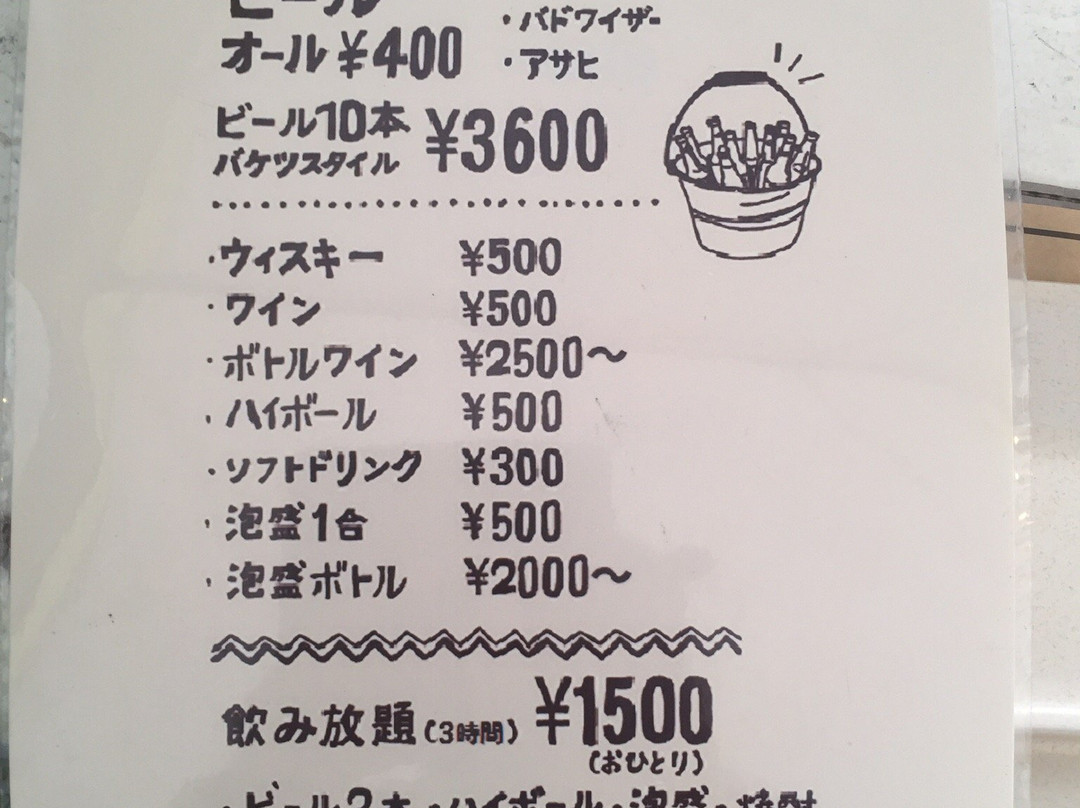 ビール
・バドワイザー
オール ¥400
・アサヒ
ビール10本 ¥3600
バケツスタイル
・ウィスキー ¥500
・ワイン ¥500
・ボトルワイン ¥2500〜
・ハイボール ¥500
・ソフトドリンク ¥300
・泡盛1合 ¥500
・泡盛ボトル ¥2000〜
飲み放題(3時間) ¥1500
(おひとり)
・ビール2本・ハイボール・泡盛・焼酎